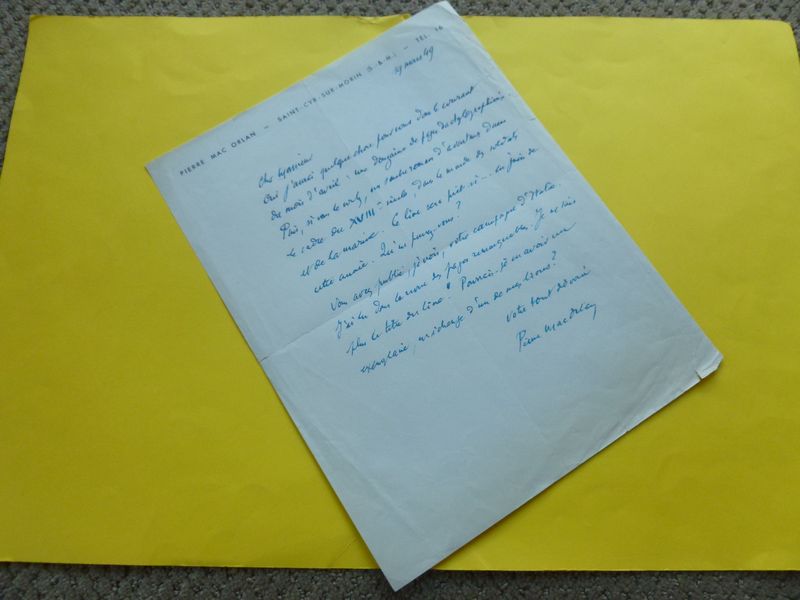 PIERRE MAC ORLAN — SAINT-CYR-SUR-MORIN (S.-&-M.) — TÉL. 16
29 mars 49
Cher Monsieur
Oui j'aurai quelque chose pour vous dans le courant
du mois d'avril : une douzaine de pages dactylographiées.
Puis, si vous le voulez, un roman d'aventures dans
le cadre du XVIIIe siècle, dans le monde des soldats
et de la marine. Le livre sera prêt si... en juin de
cette année. Qu'en pensez-vous ?
Vous avez publié, je crois, votre campagne d'Italie.
J'ai lu dans la revue des pages remarquables. Je ne sais
plus le titre du livre. Pourrais-je en avoir un
exemplaire, en échange d'un de mes livres ?
Votre tout dévoué
Pierre Mac Orlan